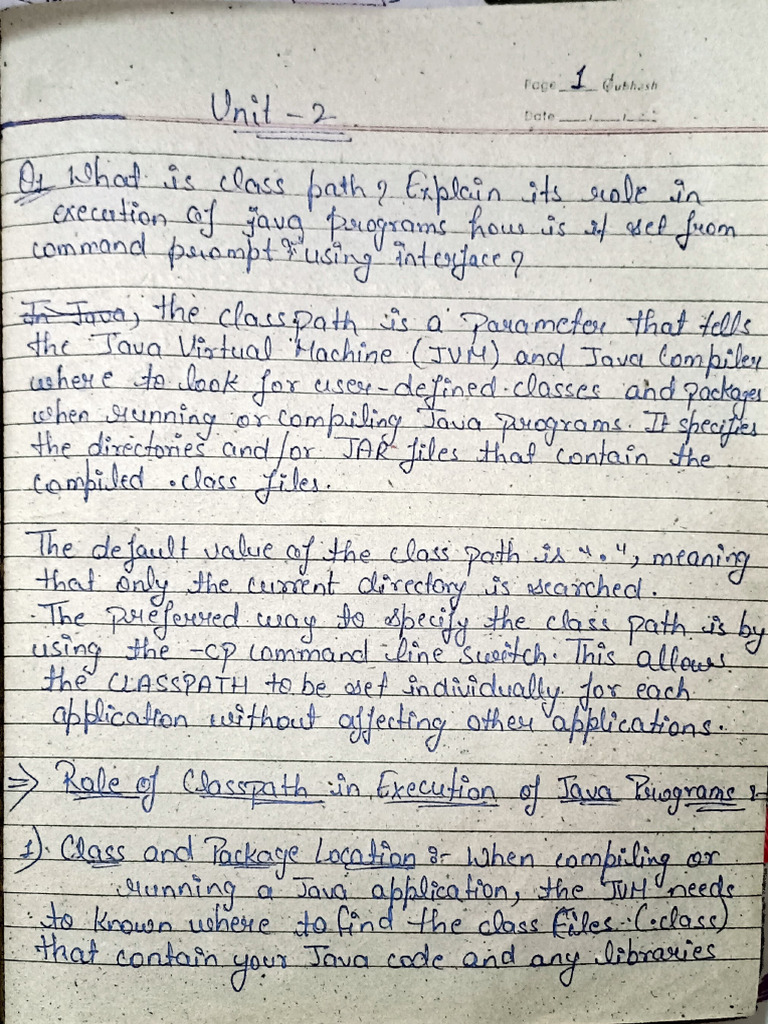 Page 1 Subhash
Date
Unit - 2
Q1 What is class path? Explain its role in
execution of java programs how is it set from
command prompt & using interface?
In Java, the classpath is a parameter that tells
the Java Virtual Machine (JVM) and Java Compiler
where to look for user-defined classes and packages
when running or compiling Java programs. It specifies
the directories and/or JAR files that contain the
compiled .class files.
The default value of the class path is ".", meaning
that only the current directory is searched.
The preferred way to specify the class path is by
using the -cp command line switch. This allows
the CLASSPATH to be set individually for each
application without affecting other applications.
=> Role of Classpath in Execution of Java Programs :-
1). Class and Package Location :- When compiling or
running a Java application, the JVM needs
to known where to find the class files (.class)
that contain your Java code and any libraries